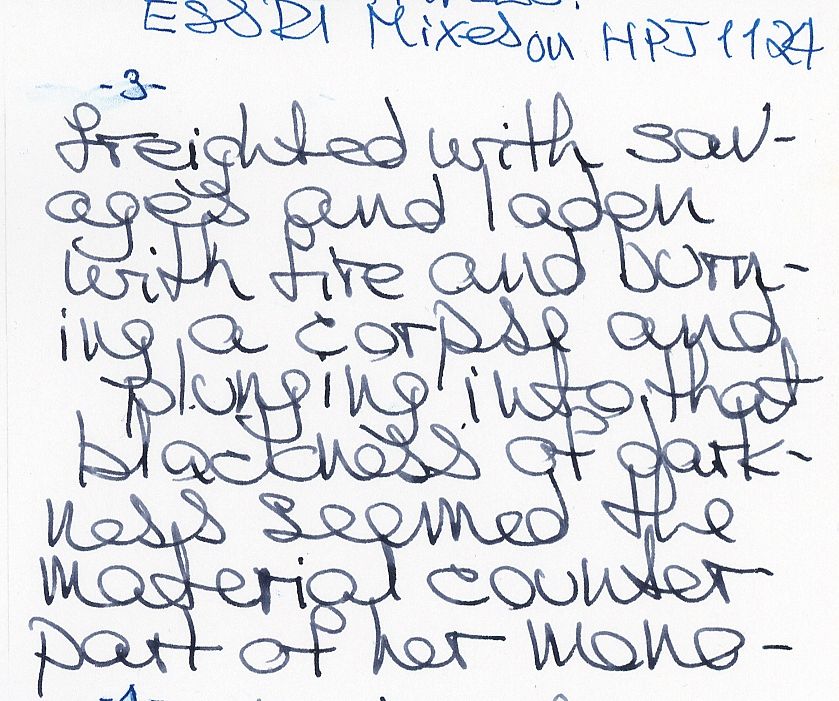 ESSRI Mixes on HPJ1124
-3-
freighted with sav-
ages and laden
with fire and burn-
ing a corpse and
plunging into that
blackness of dark-
ness seemed the
material counter
part of her mono-